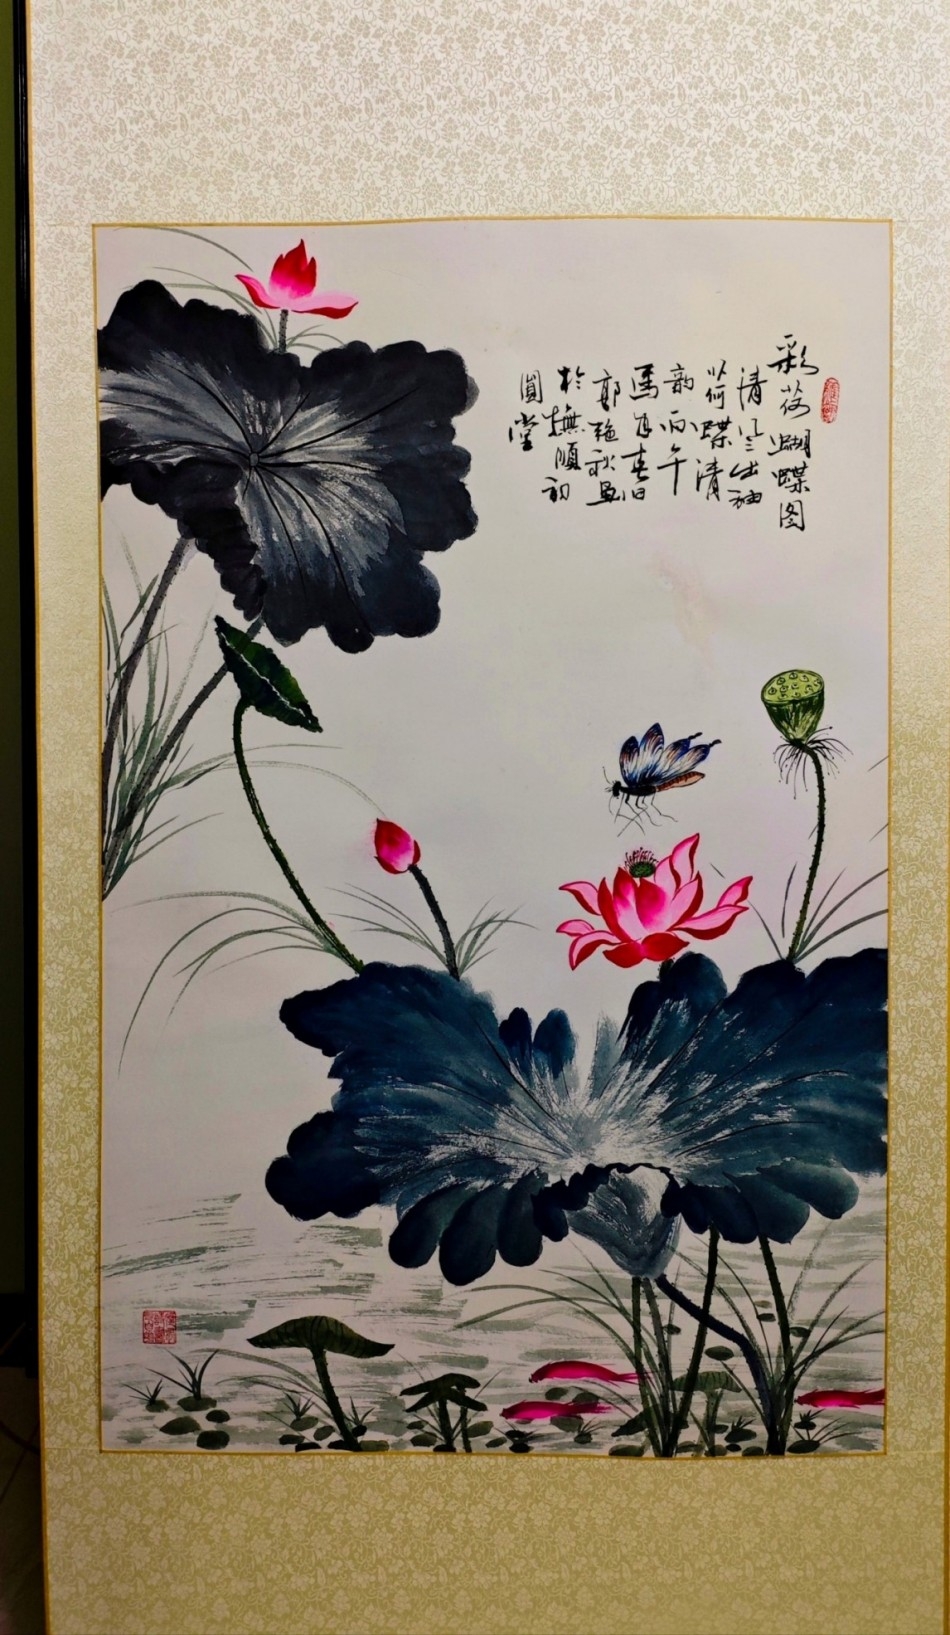 彩荷蝴蝶图
清风出袖
荷蝶清
韵丙午
马月春日
郭艳秋画
於抚顺初
圆堂